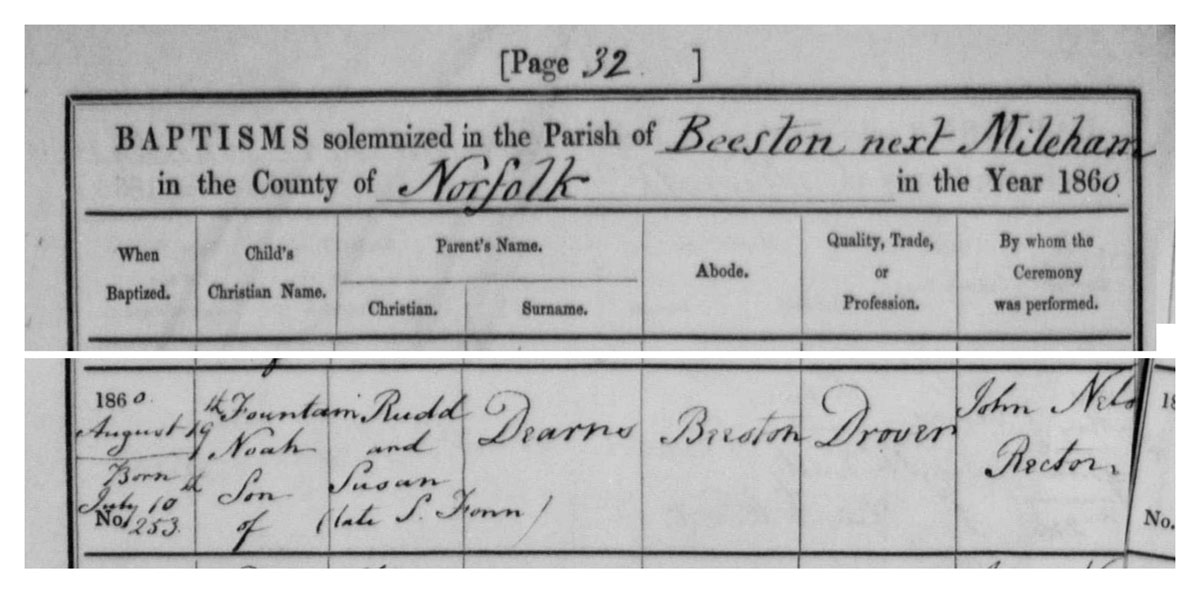 [Page 32 ]
BAPTISMS solemnized in the Parish of Beeston next Mileham
in the County of Norfolk in the Year 1860
When Baptized.
Child's Christian Name.
Parent's Name.
Christian.
Surname.
Abode.
Quality, Trade, or Profession.
By whom the Ceremony was performed.
1860.
August 19th
Born
July 10th
No. 253.
Fountain
Noah
Son
of
Rudd
and
Susan
(late S. Fonn)
Dearns
Beeston
Drover
John Nels
Rector
18
No.